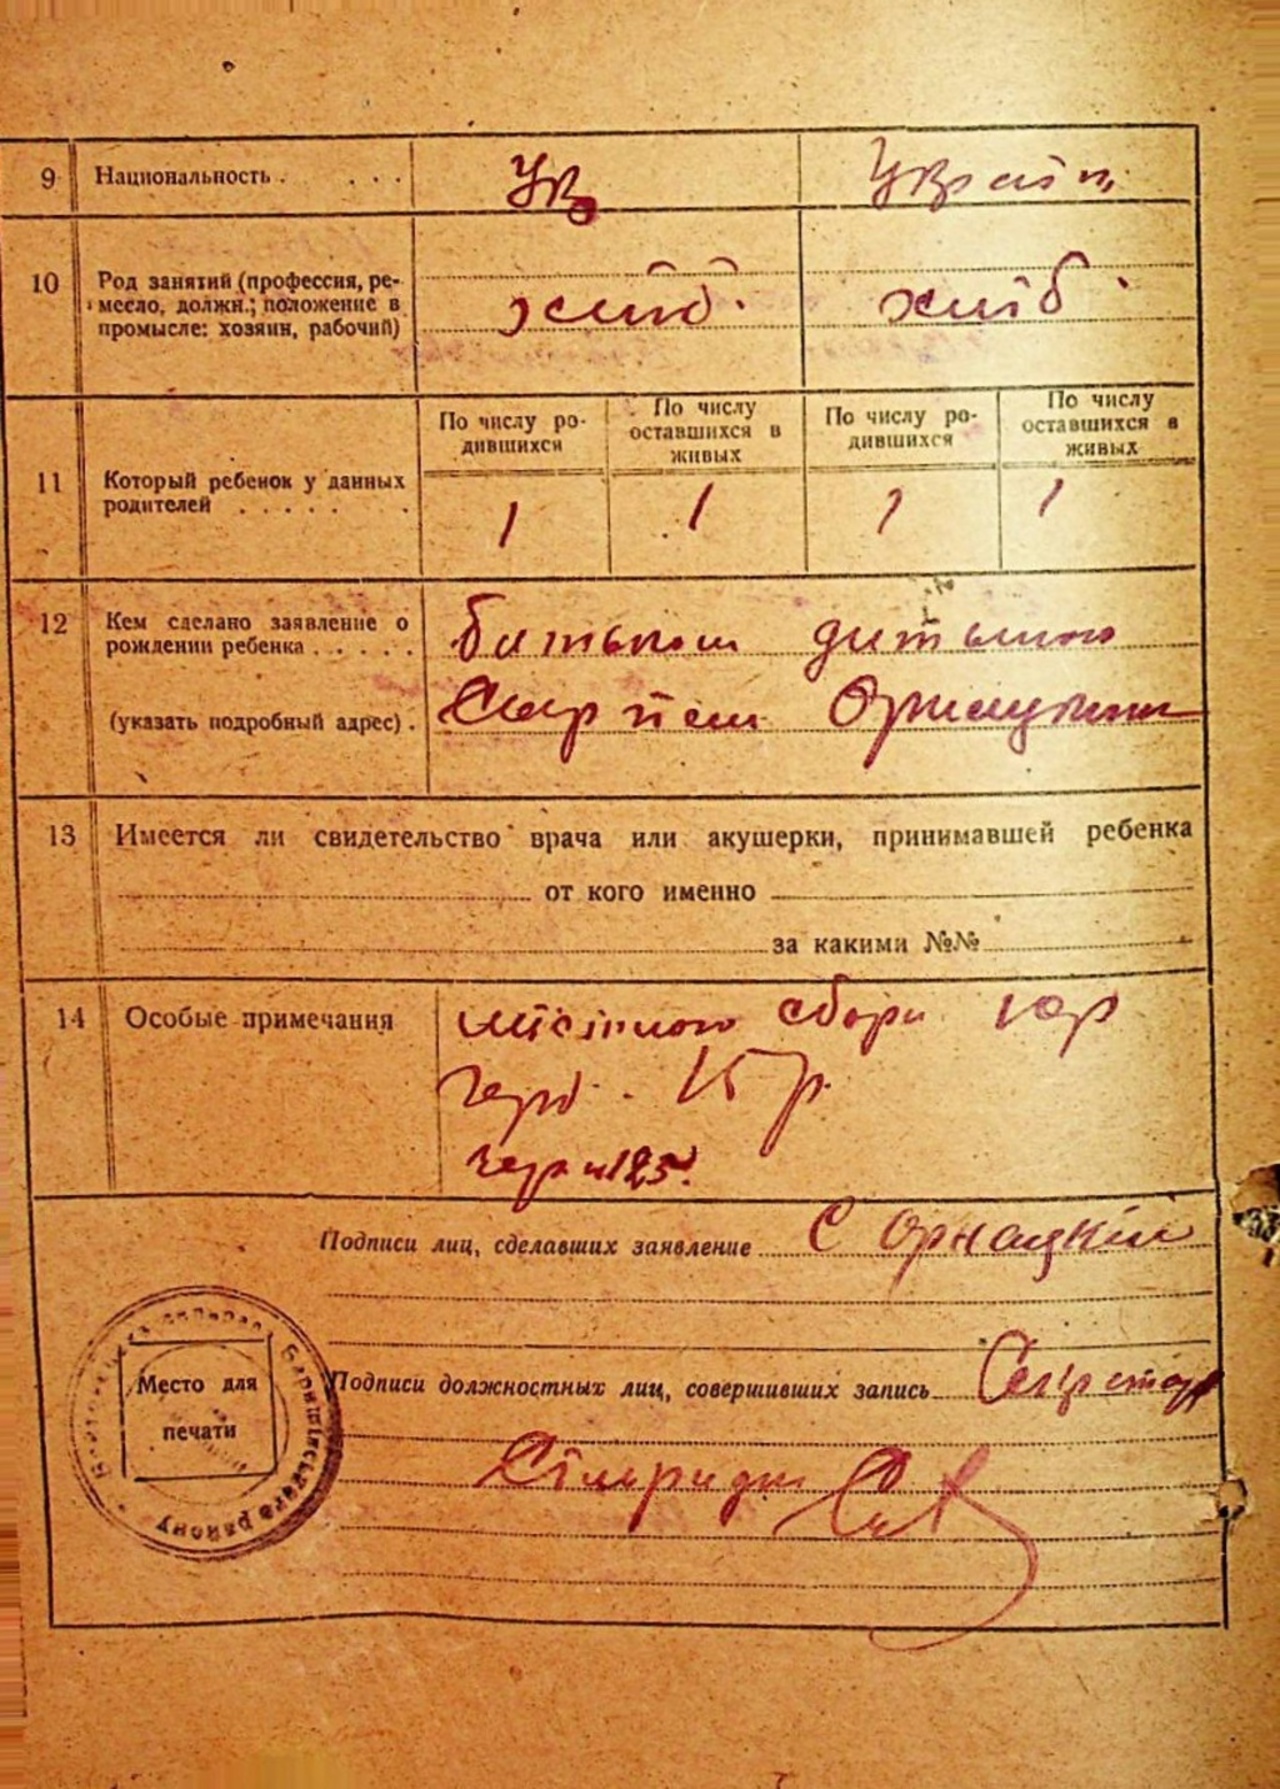 9 Национальность . . . . Ук Украін,
10 Род занятий (профессия, ре-
месло, должн.; положение в
промысле: хозяин, рабочий) хліб. хліб.
По числу ро-
дившихся
По числу
оставшихся в
живых
По числу ро-
дившихся
По числу
оставшихся в
живых
11 Который ребенок у данных
родителей . . . . . . 1 1 1 1
12 Кем сделано заявление о
рождении ребенка . . . . . батьком дитини
(указать подробный адрес) . Сергієм Орнацким
13 Имеется ли свидетельство врача или акушерки, принимавшей ребенка
от кого именно
за какими №№
14 Особые примечания місцного збору 10р
герб. 15р.
Подписи лиц, сделавших заявление С Орнацкій
Подписи должностных лиц, совершивших запись Секретар
Место для
печати
Баришівського району